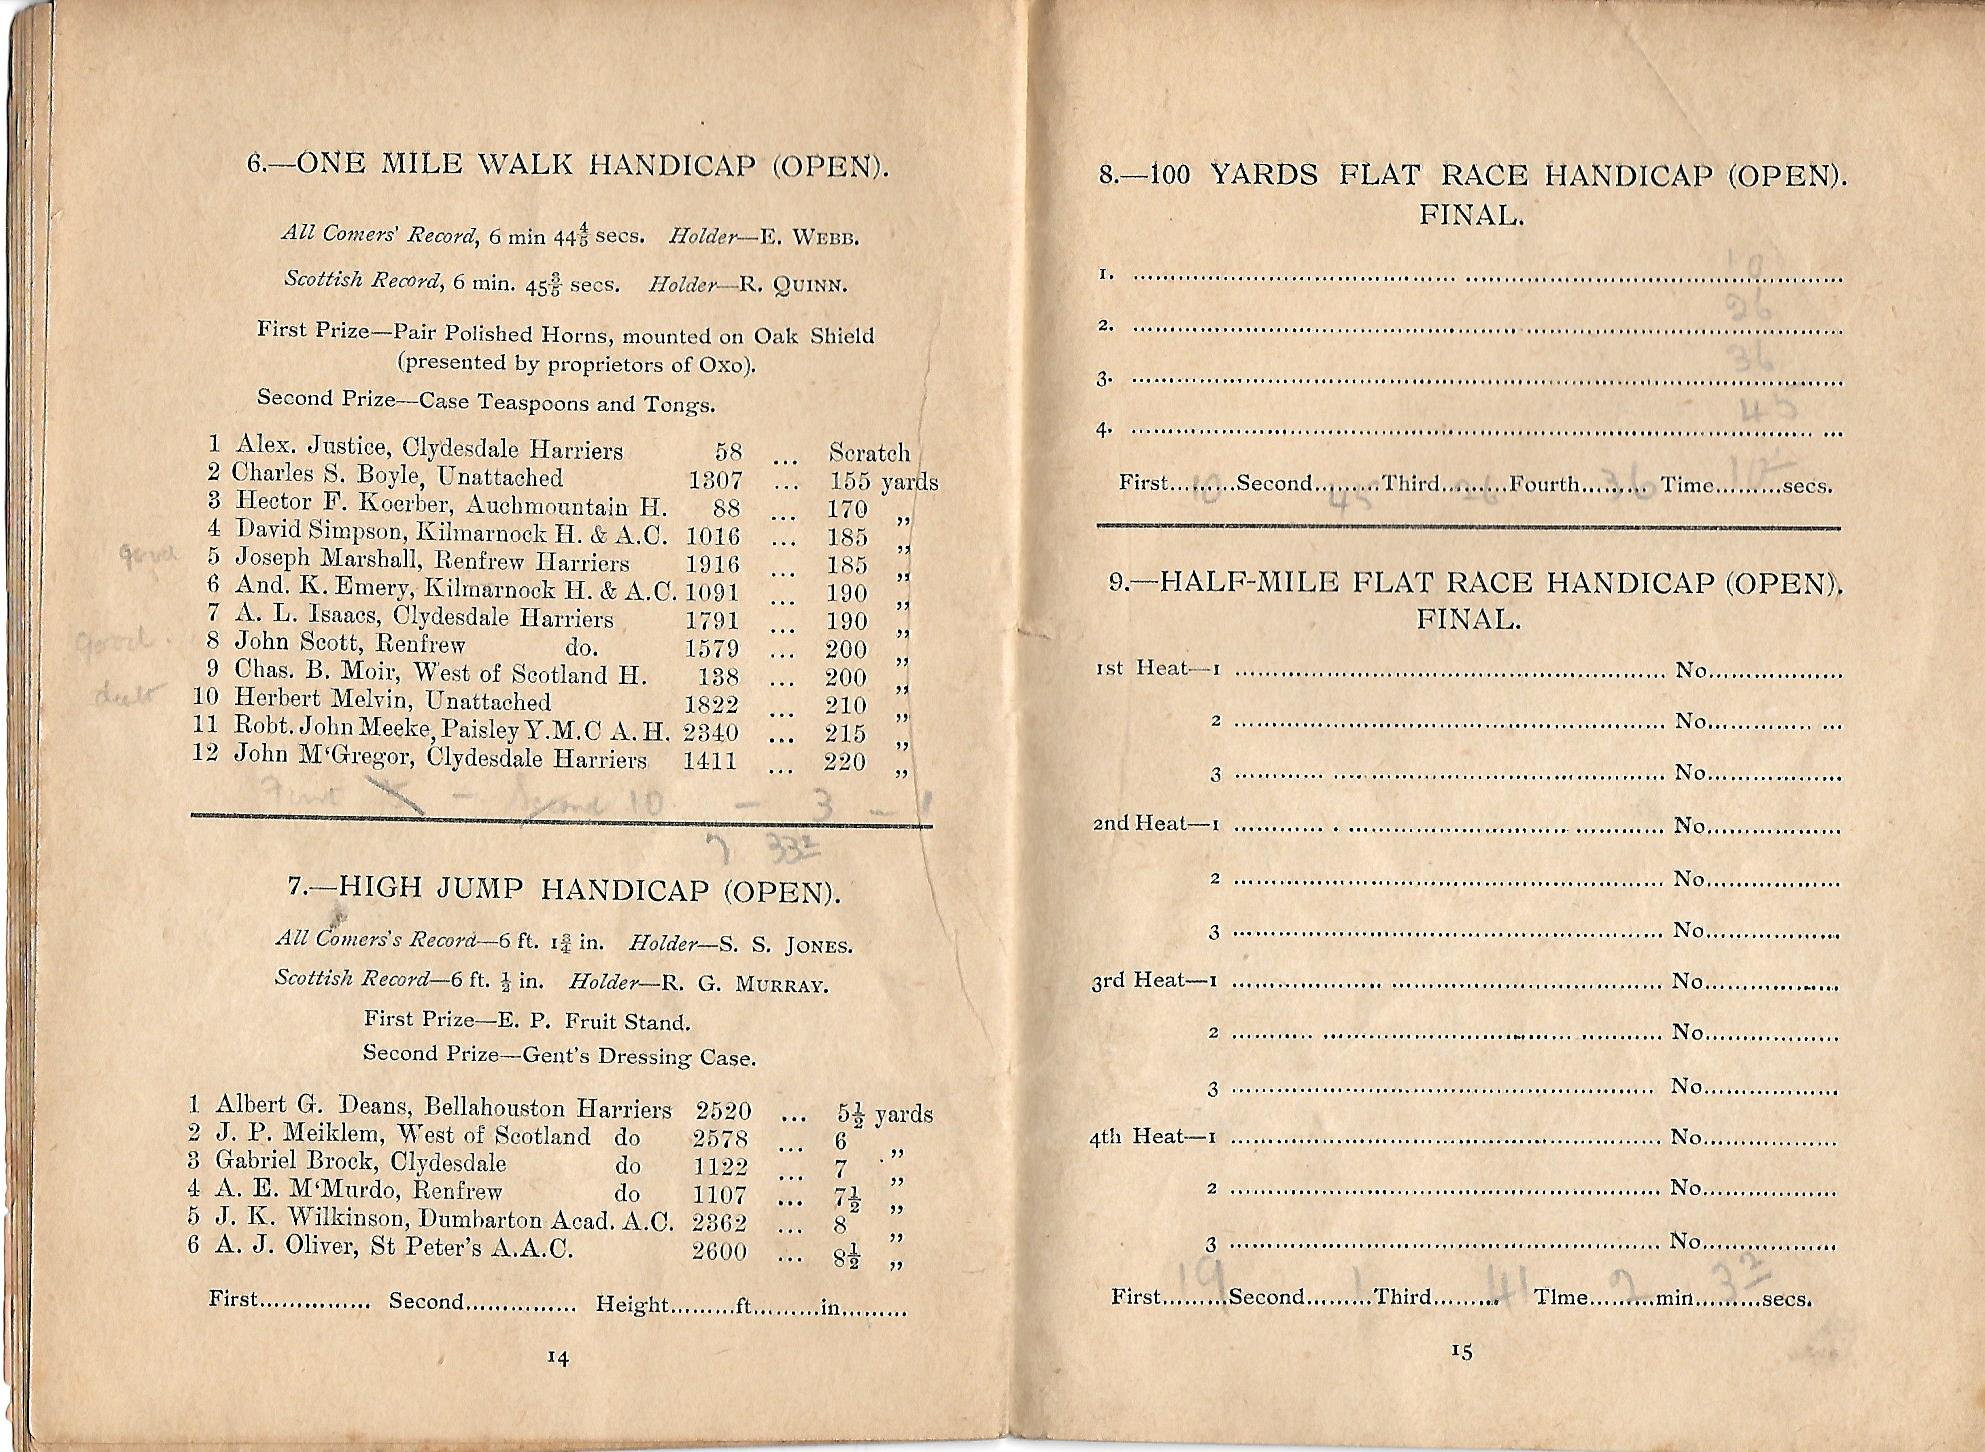 6.—ONE MILE WALK HANDICAP (OPEN).
All Comers' Record, 6 min 44⅘ secs. Holder—E. WEBB.
Scottish Record, 6 min. 45⅗ secs. Holder—R. QUINN.
First Prize—Pair Polished Horns, mounted on Oak Shield
(presented by proprietors of Oxo).
Second Prize—Case Teaspoons and Tongs.
1 Alex. Justice, Clydesdale Harriers 58 ... Scratch
2 Charles S. Boyle, Unattached 1307 ... 155 yards
3 Hector F. Koerber, Auchmountain H. 88 ... 170 ,,
4 David Simpson, Kilmarnock H. & A.C. 1016 ... 185 ,,
good 5 Joseph Marshall, Renfrew Harriers 1916 ... 185 ,,
6 And. K. Emery, Kilmarnock H. & A.C. 1091 ... 190 ,,
7 A. L. Isaacs, Clydesdale Harriers 1791 ... 190 ,,
good. 8 John Scott, Renfrew do. 1579 ... 200 ,,
9 Chas. B. Moir, West of Scotland H. 138 ... 200 ,,
10 Herbert Melvin, Unattached 1822 ... 210 ,,
11 Robt. John Meeke, Paisley Y.M.C A.H. 2340 ... 215 ,,
12 John M'Gregor, Clydesdale Harriers 1411 ... 220 ,,
First - Second 10. - 3 - 1
7 33²
7.—HIGH JUMP HANDICAP (OPEN).
All Comers's Record—6 ft. 1¾ in. Holder—S. S. JONES.
Scottish Record—6 ft. ½ in. Holder—R. G. MURRAY.
First Prize—E. P. Fruit Stand.
Second Prize—Gent's Dressing Case.
1 Albert G. Deans, Bellahouston Harriers 2520 ... 5½ yards
2 J. P. Meiklem, West of Scotland do 2578 ... 6 ,,
3 Gabriel Brock, Clydesdale do 1122 ... 7 ,,
4 A. E. M'Murdo, Renfrew do 1107 ... 7½ ,,
5 J. K. Wilkinson, Dumbarton Acad. A.C. 2362 ... 8 ,,
6 A. J. Oliver, St Peter's A.A.C. 2600 ... 8½ ,,
First............... Second............... Height.........ft.........in.........
14
8.—100 YARDS FLAT RACE HANDICAP (OPEN).
FINAL.
1. .......... 10
2. .......... 26
3. .......... 36
4. .......... 45
First...10...Second...45...Third...26...Fourth...36... Time...10²...secs.
9.—HALF-MILE FLAT RACE HANDICAP (OPEN).
FINAL.
1st Heat—1 .......... No..........
2 .......... No..........
3 .......... No..........
2nd Heat—1 .......... No..........
2 .......... No..........
3 .......... No..........
3rd Heat—1 .......... No..........
2 .......... No..........
3 .......... No..........
4th Heat—1 .......... No..........
2 .......... No..........
3 .......... No..........
First...19...Second...1...Third...41... Tlme...2...min...3²...secs.
15